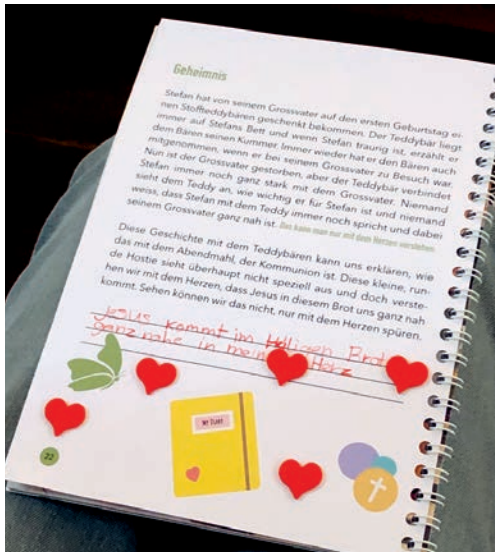 Geheimnis
Stefan hat von seinem Grossvater auf den ersten Geburtstag ei-
nen Stoffteddybären geschenkt bekommen. Der Teddybär liegt
immer auf Stefans Bett und wenn Stefan traurig ist, erzählt er
dem Bären seinen Kummer. Immer wieder hat er den Bären auch
mitgenommen, wenn er bei seinem Grossvater zu Besuch war.
Nun ist der Grossvater gestorben, aber der Teddybär verbindet
Stefan immer noch ganz stark mit dem Grossvater. Niemand
sieht dem Teddy an, wie wichtig er für Stefan ist und niemand
weiss, dass Stefan mit dem Teddy immer noch spricht und dabei
seinem Grossvater ganz nah ist. Das kann man nur mit dem Herzen verstehen.
Diese Geschichte mit dem Teddybären kann uns erklären, wie
das mit dem Abendmahl, der Kommunion ist. Diese kleine, run-
de Hostie sieht überhaupt nicht speziell aus und doch verste-
hen wir mit dem Herzen, dass Jesus in diesem Brot uns ganz nah
kommt. Sehen können wir das nicht, nur mit dem Herzen spüren.
Jesus kommt im Heiligen Brot
ganz nahe in mein Herz
MY DIARY
22